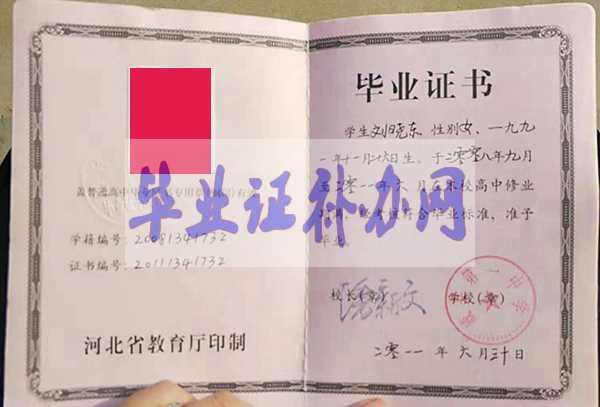 盖普通高中毕业证书专用章(钢印)有效
学籍编号: 20081341732
证书编号: 20111341732
河北省教育厅印制
毕业证书
学生刘晓东、性别女、一九九
一年十一月二十六日生,于二零零八年九月
至二零一一年六月在本校高中修业
期满,经考核符合毕业标准,准予
毕业
毕业证补办网
校长(章)
学校(章)
第一中学
二零一一年六月三十日